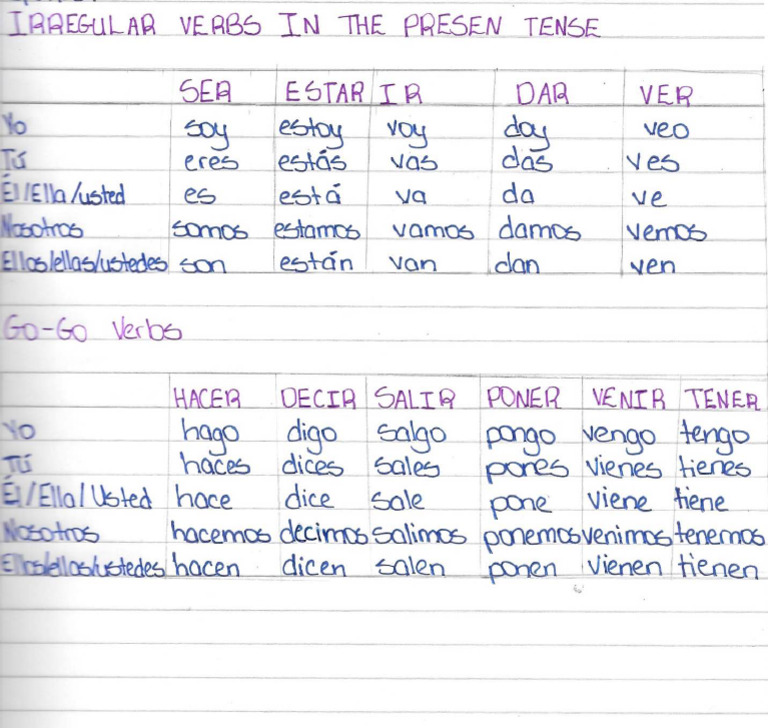 IRREGULAR VERBS IN THE PRESEN TENSE
SER ESTAR IR DAR VER
Yo soy estoy voy doy veo
Tú eres estás vas das ves
Él/Ella/usted es está va da ve
Nosotros somos estamos vamos damos vemos
Ellos/ellas/ustedes son están van dan ven
Go-Go Verbs
HACER DECIR SALIR PONER VENIR TENER
YO hago digo salgo pongo vengo tengo
Tú haces dices sales pones vienes tienes
Él/Ella/Usted hace dice sale pone viene tiene
Nosotros hacemos decimos salimos ponemos venimos tenemos
Ellos/ellas/ustedes hacen dicen salen ponen vienen tienen